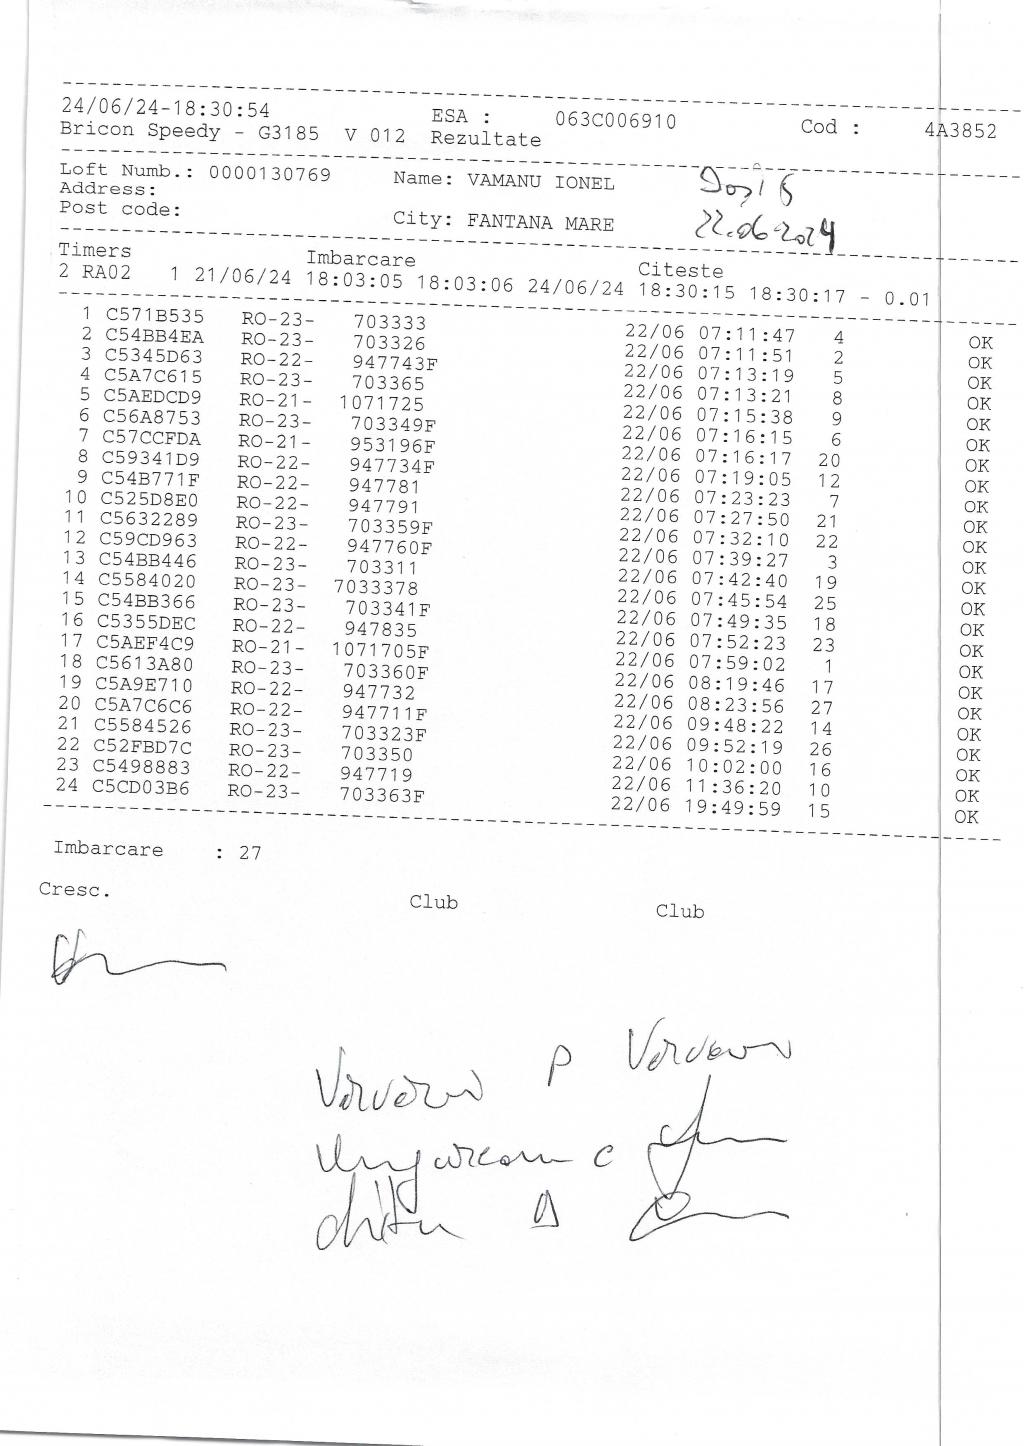 24/06/24-18:30:54 ESA : 063C006910 Cod : 4A3852
Bricon Speedy - G3185 V 012 Rezultate
Loft Numb.: 0000130769 Name: VAMANU IONEL
Address:
Post code: City: FANTANA MARE 22.06.2024
Timers Imbarcare Citeste
2 RA02 1 21/06/24 18:03:05 18:03:06 24/06/24 18:30:15 18:30:17 - 0.01
1 C571B535 RO-23- 703333 22/06 07:11:47 4 OK
2 C54BB4EA RO-23- 703326 22/06 07:11:51 2 OK
3 C5345D63 RO-22- 947743F 22/06 07:13:19 5 OK
4 C5A7C615 RO-23- 703365 22/06 07:13:21 8 OK
5 C5AEDCD9 RO-21- 1071725 22/06 07:15:38 9 OK
6 C56A8753 RO-23- 703349F 22/06 07:16:15 6 OK
7 C57CCFDA RO-21- 953196F 22/06 07:16:17 20 OK
8 C59341D9 RO-22- 947734F 22/06 07:19:05 12 OK
9 C54B771F RO-22- 947781 22/06 07:23:23 7 OK
10 C525D8E0 RO-22- 947791 22/06 07:27:50 21 OK
11 C5632289 RO-23- 703359F 22/06 07:32:10 22 OK
12 C59CD963 RO-22- 947760F 22/06 07:39:27 3 OK
13 C54BB446 RO-23- 703311 22/06 07:42:40 19 OK
14 C5584020 RO-23- 7033378 22/06 07:45:54 25 OK
15 C54BB366 RO-23- 703341F 22/06 07:49:35 18 OK
16 C5355DEC RO-22- 947835 22/06 07:52:23 23 OK
17 C5AEF4C9 RO-21- 1071705F 22/06 07:59:02 1 OK
18 C5613A80 RO-23- 703360F 22/06 08:19:46 17 OK
19 C5A9E710 RO-22- 947732 22/06 08:23:56 27 OK
20 C5A7C6C6 RO-22- 947711F 22/06 09:48:22 14 OK
21 C5584526 RO-23- 703323F 22/06 09:52:19 26 OK
22 C52FBD7C RO-23- 703350 22/06 10:02:00 16 OK
23 C5498883 RO-22- 947719 22/06 11:36:20 10 OK
24 C5CD03B6 RO-23- 703363F 22/06 19:49:59 15 OK
Imbarcare : 27
Cresc. Club Club
P
C